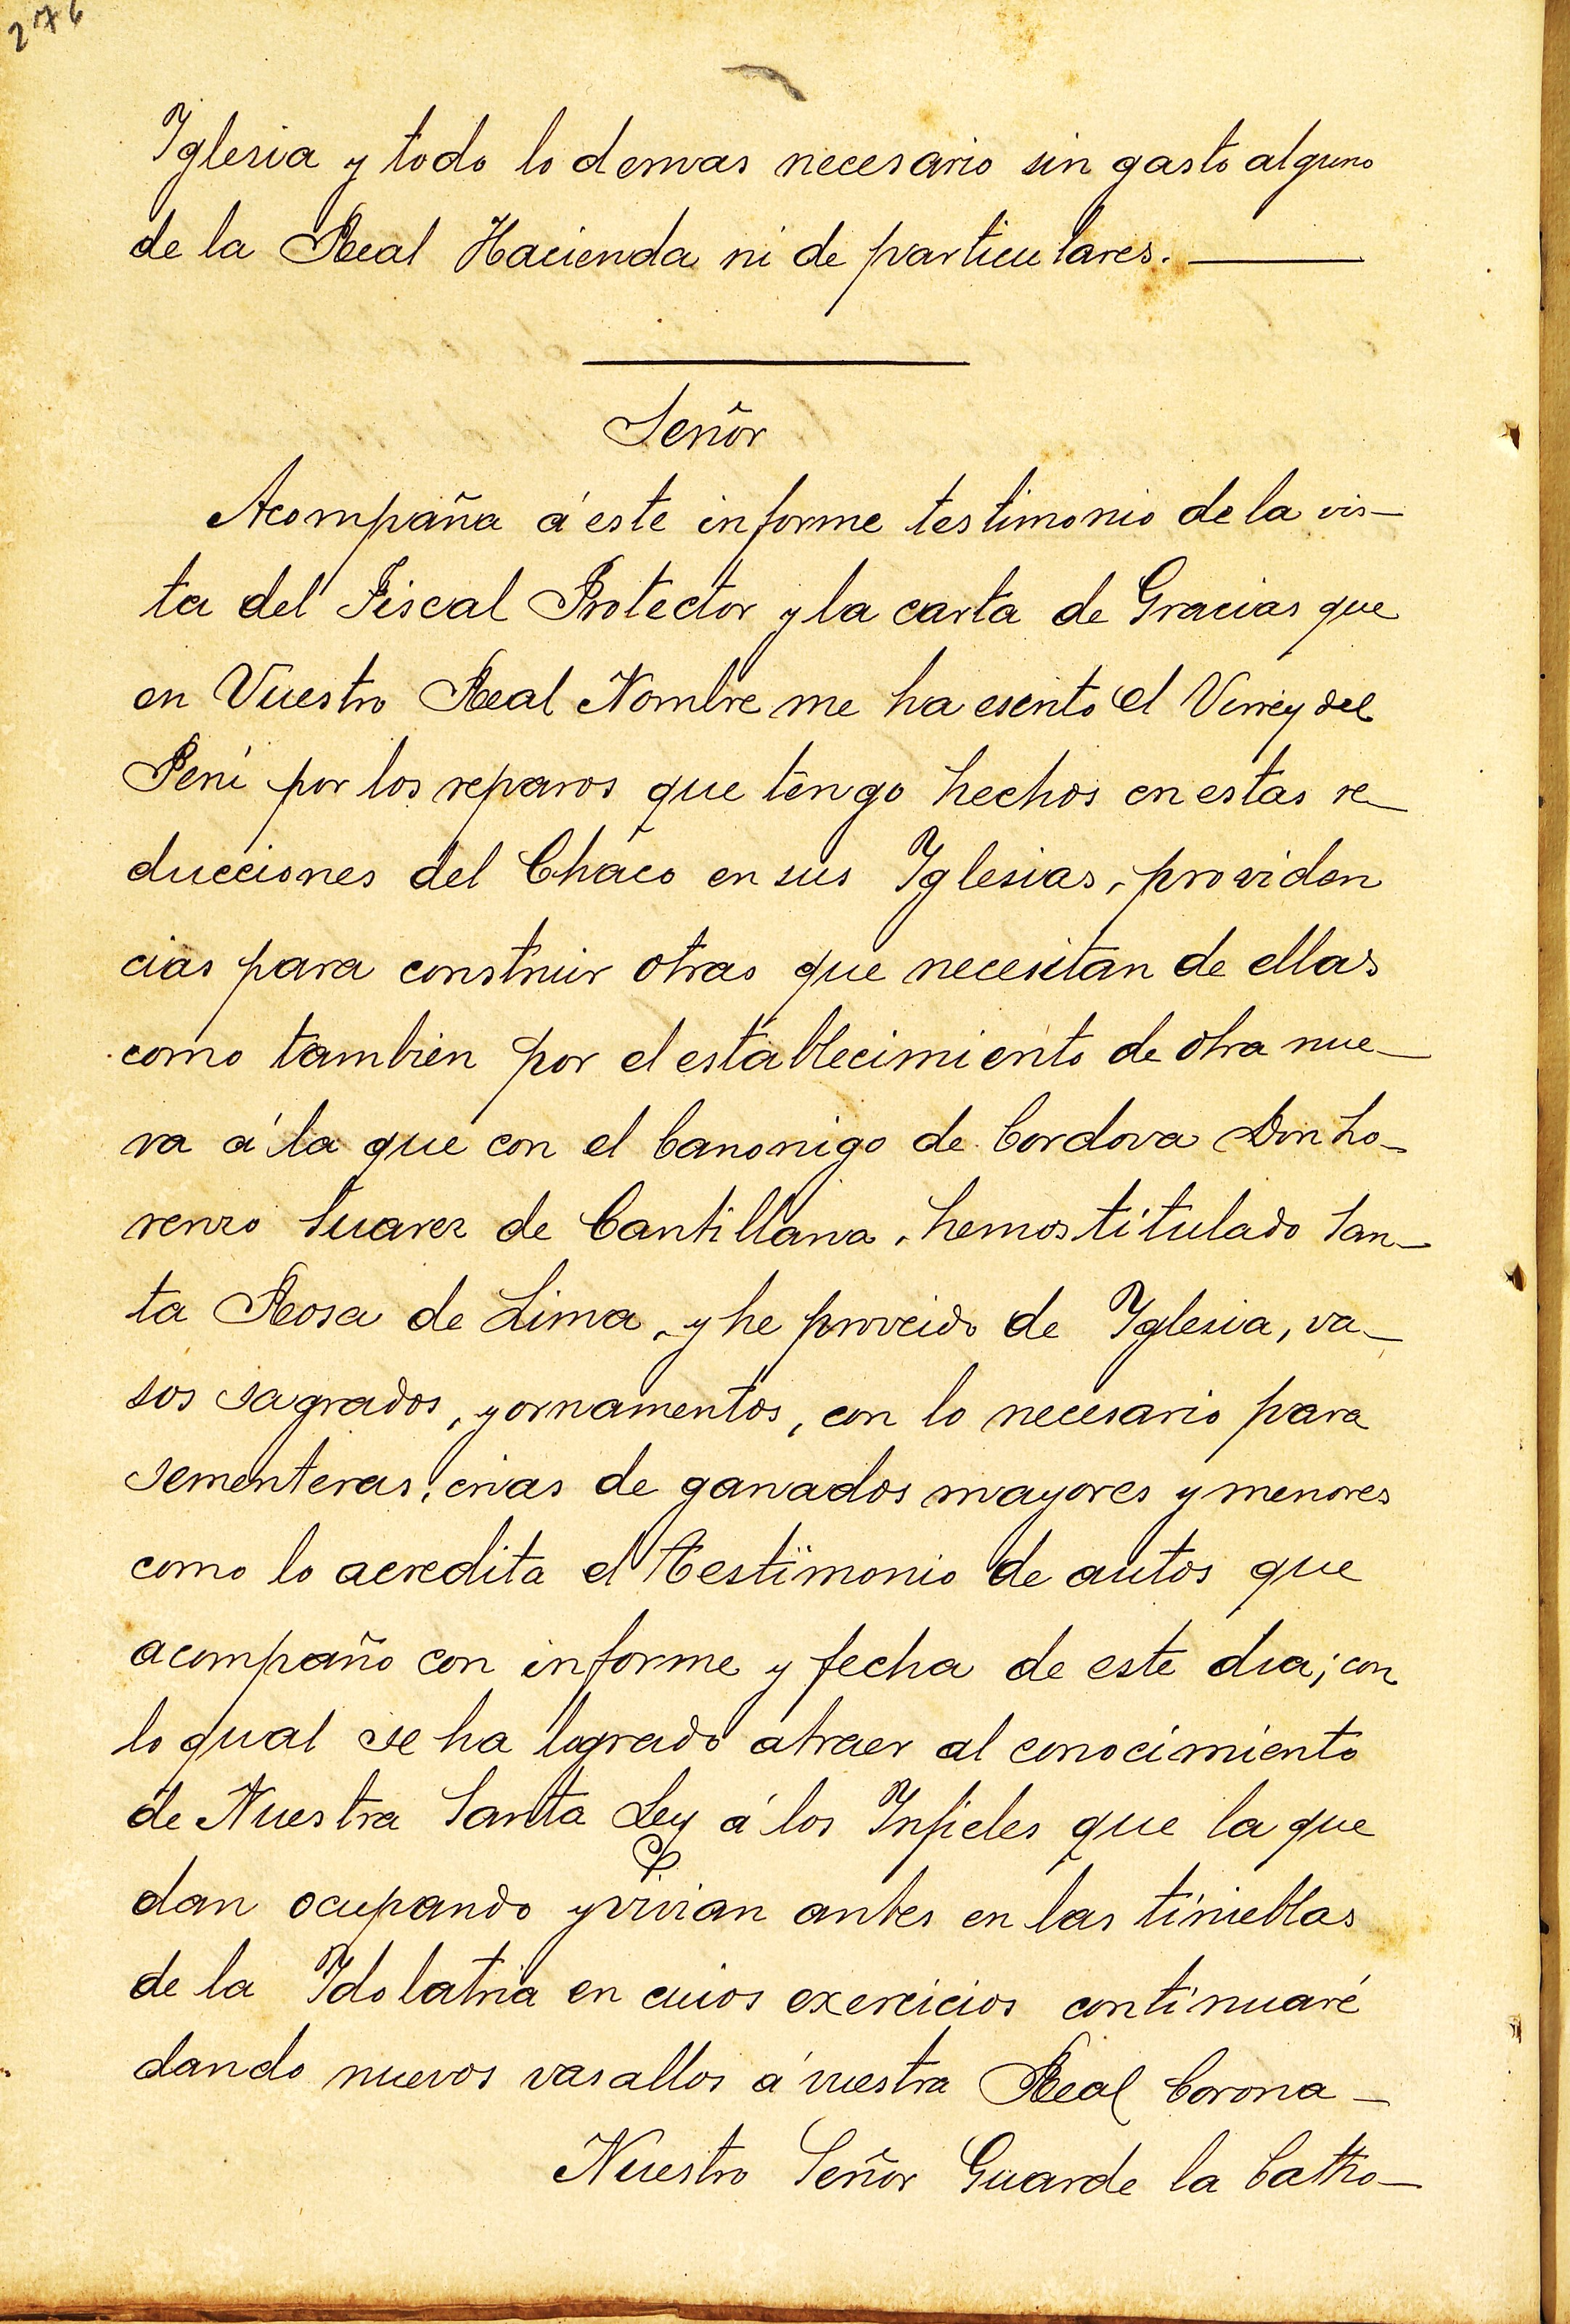 276
Iglesia y todo lo demas necesario sin gasto alguno
de la Real Hacienda ni de particulares.
Señor
Acompaña á este informe testimonio de la vis-
ta del Fiscal Protector y la carta de Gracias que
en Vuestro Real Nombre me ha escrito el Virrey del
Perú por los reparos que tengo hechos en estas re-
ducciones del Chaco en sus Iglesias, providen
cias para construir otras que necesitan de ellas
como tambien por el establecimiento de otra nue-
va á la que con el Canonigo de Cordova Don Lo-
renzo Suarez de Cantillana, hemos titulado San-
ta Rosa de Lima, y he proveido de Iglesia, va-
sos sagrados, y ornamentos, con lo necesario para
sementeras, crias de ganados mayores y menores
como lo acredita el Testimonio de autos que
acompaño con informe y fecha de este dia; con
lo qual se ha logrado atraer al conocimiento
de Nuestra Santa Ley á los Infieles que la que
dan ocupando y vivian antes en las tinieblas
de la Idolatria en cuios exercicios continuaré
dando nuevos vasallos á vuestra Real Corona -
Nuestro Señor Guarde la Catho-